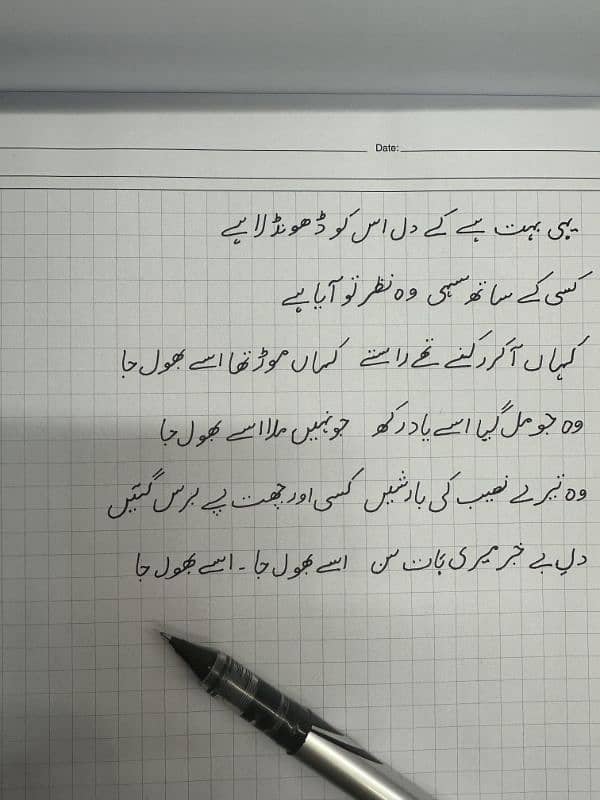 Date:
یہی بہت ہے کے دل اس کو ڈھونڈ لایا ہے
کسی کے ساتھ سہی وہ نظر تو آیا ہے
کہاں آکر رکنے تھے راستے کہاں موڑ تھا اسے بھول جا
وہ جو مل گیا اسے یاد رکھ جو نہیں ملا اسے بھول جا
وہ تیرے نصیب کی بارشیں کسی اور چھت پے برس گئیں
دلِ بے خبر میری بات سن اسے بھول جا ۔ اسے بھول جا